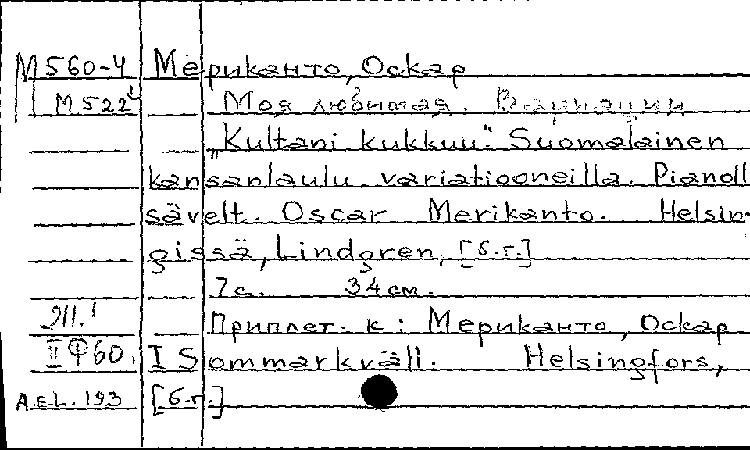 М560-4 Мериканто, Оскар
М522 Моя любимая. Вариации
„Kultani kukkuu". Suomalainen
kansanlaulu variatiooneilla. Pianoll
sävelt. Oscar Merikanto. Helsin-
gissä, Lindgren, [б.г.]
7с. 34 см.
Приплет. к: Мериканто, Оскар
IIФ60. I Sommarkväll. Helsingfors,
А.Е.L. 193 [б.г.]